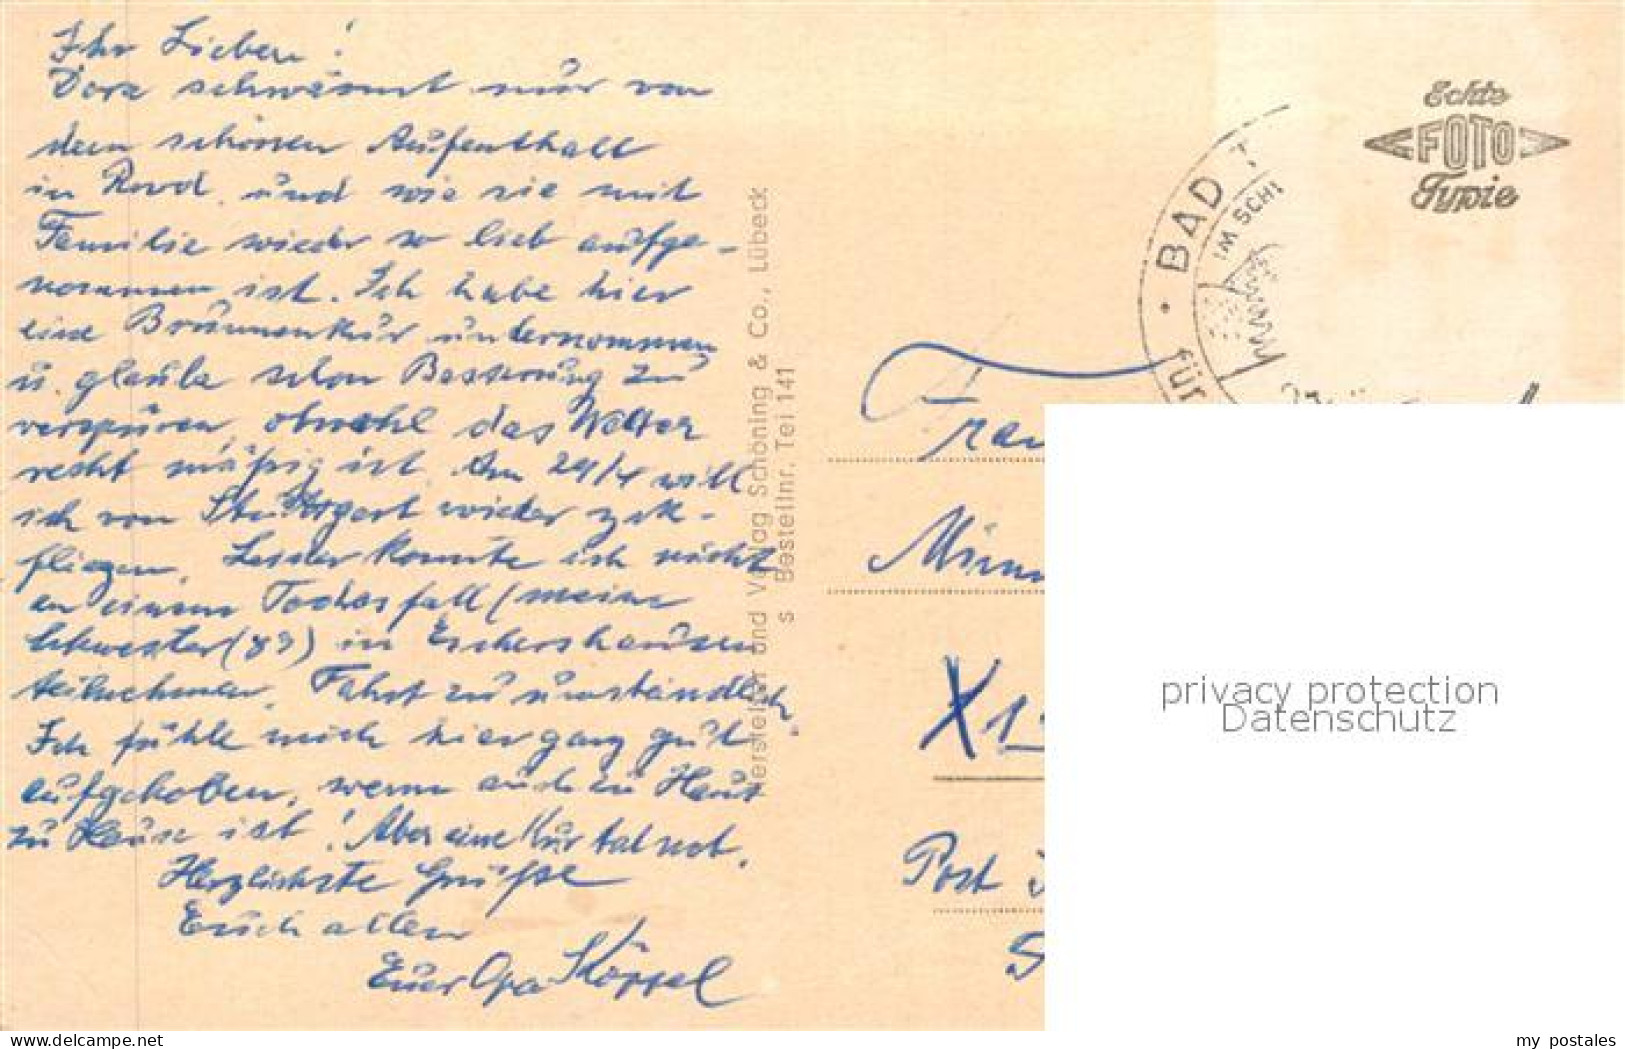 Ihr Lieben!
Dora schwärmt nur von
dem schönen Aufenthalt
in Rovd. und wie sie mit
Familie wieder so lieb aufge-
nommen ist. Ich habe hier
eine Brunnenkur unternommen
u. glaube schon Besserung zu
verspüren, obwohl das Wetter
recht mäßig ist. Am 29/4 will
ich von Stuttgart wieder zck-
fliegen. Leider konnte ich nicht
an einem Todesfall (meine
Schwester (83) in Eschershausen
teilnehmen. Fahrt zu umständlich.
Ich fühle mich hier ganz gut
aufgehoben, wenn auch zu Haus
zu Hause ist! Aber eine Kur tat not.
Herzlichste Grüße
Euch allen
Euer Opa Köppel
Hersteller und Verlag Schöning & Co., Lübeck
s Bestellnr. Tei 141
Echte
FOTO
Typie
BAD T
IM SCH
für
X1
Post
privacy protection
Datenschutz
my postales
www.delcampe.net